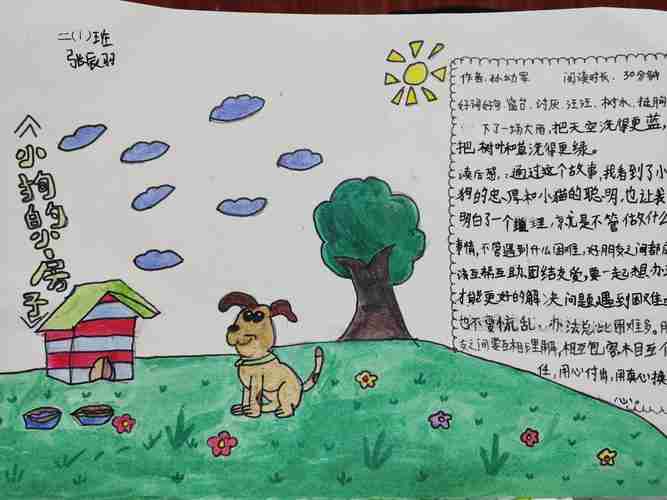 二(1)班
张辰羽
《小狗的小房子》
作者:孙幼军 阅读时长:30分钟
好词好句:盆台、讨厌、汪汪、树木、推
下了一场大雨,把天空洗得更蓝,
把树叶和草洗得更绿。
读后感:通过这个故事,我看到了小
狗的忠 和小猫的聪明,也让我
明白了一个 理,那就是不管做什么
事情,不管遇到什么困难,好朋友之间都应
该互相互助、团结友爱,要一起想办
才能更好的解决问题,遇到困难
也不要慌乱,办法总比困难多。
友之间要互相理解,相互包容,
任,用心付出,用真心换
心。